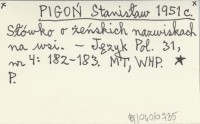 PIGOŃ Stanisław 1951 c.
Słówko o żeńskich nazwiskach
na wsi. – Język Pol. 31,
nr 4: 182-183. MT, WHP. *
P.